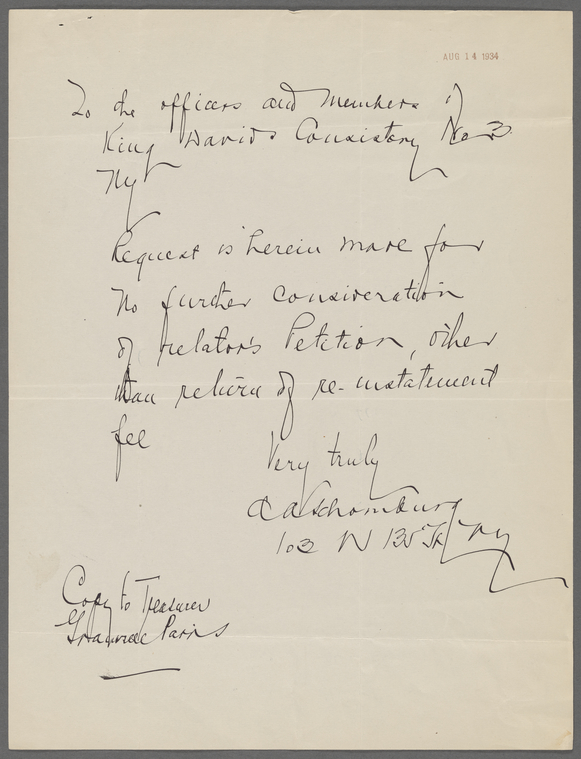 AUG 14 1934
To the officers and Members of
King Davids Consistory No 3
Ny
Request is herein made for
no further consideration
of relator's Petition, other
than return of re-instatement
fee
Very truly
A A Schomburg
103 W 135 St Ny
Copy to Treasurer
Paris